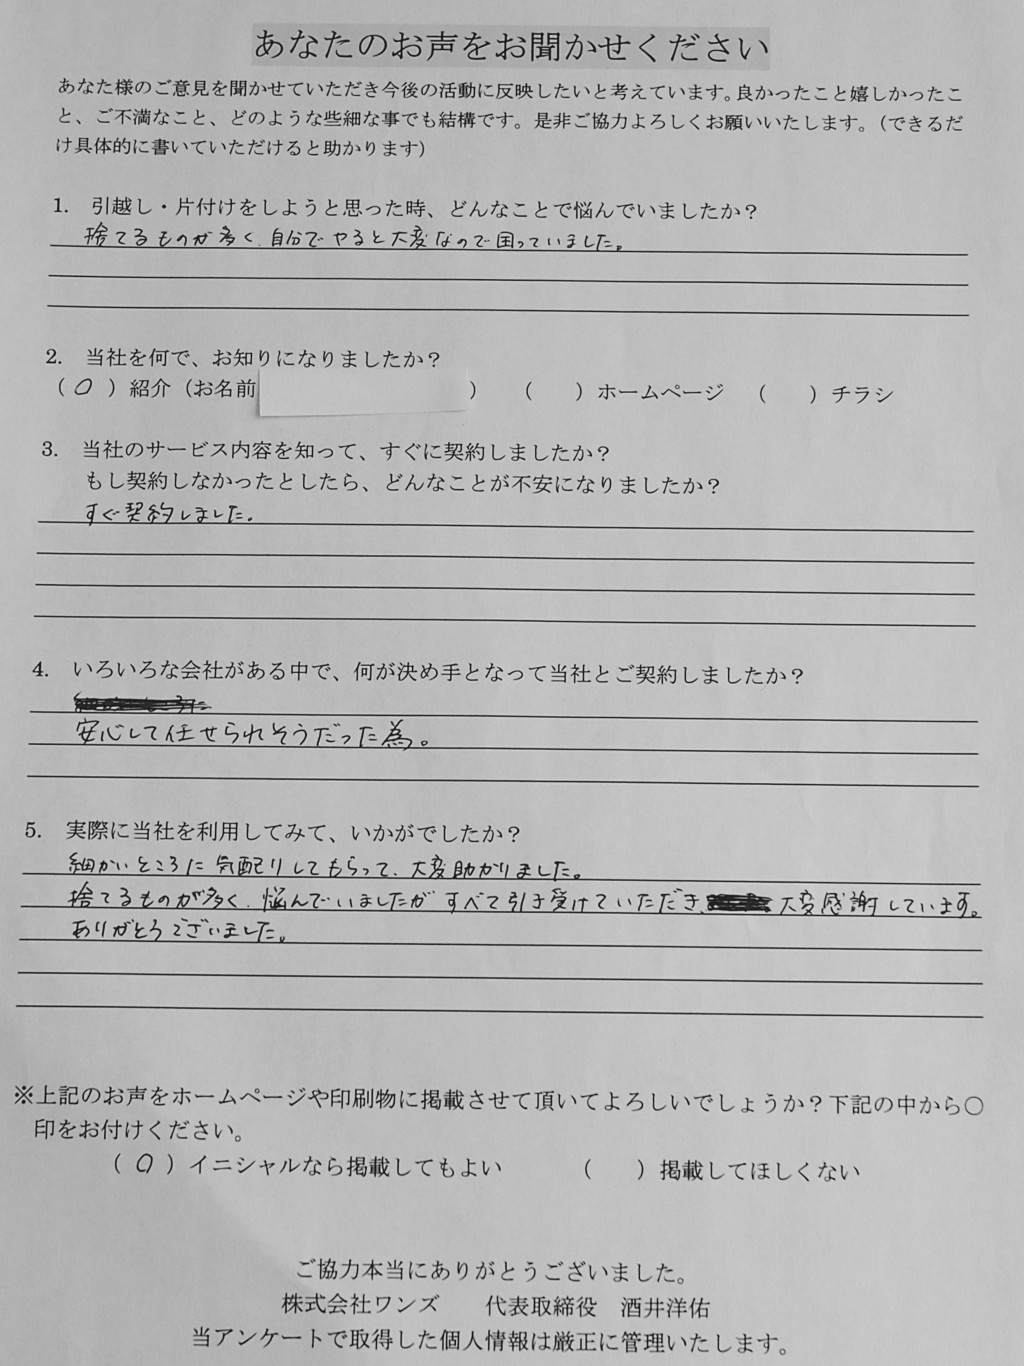 あなたのお声をお聞かせください
あなた様のご意見を聞かせていただき今後の活動に反映したいと考えています。良かったこと嬉しかったこ
と、ご不満なこと、どのような些細な事でも結構です。是非ご協力よろしくお願いいたします。（できるだ
け具体的に書いていただけると助かります）
1. 引越し・片付けをしようと思った時、どんなことで悩んでいましたか？
捨てるものが多く、自分でやると大変なので困っていました。
2. 当社を何で、お知りになりましたか？
（ ○ ）紹介（お名前　　　　　）　（　　）ホームページ　（　　）チラシ
3. 当社のサービス内容を知って、すぐに契約しましたか？
もし契約しなかったとしたら、どんなことが不安になりましたか？
すぐ契約しました。
4. いろいろな会社がある中で、何が決め手となって当社とご契約しましたか？
安心して任せられそうだった為。
5. 実際に当社を利用してみて、いかがでしたか？
細かいところに気配りしてもらって、大変助かりました。
捨てるものが多く、悩んでいましたがすべて引き受けていただき、大変感謝しています。
ありがとうございました。
※上記のお声をホームページや印刷物に掲載させて頂いてよろしいでしょうか？下記の中から〇
印をお付けください。
（ ○ ）イニシャルなら掲載してもよい　　（　　）掲載してほしくない
ご協力本当にありがとうございました。
株式会社ワンズ　　代表取締役　酒井洋佑
当アンケートで取得した個人情報は厳正に管理いたします。